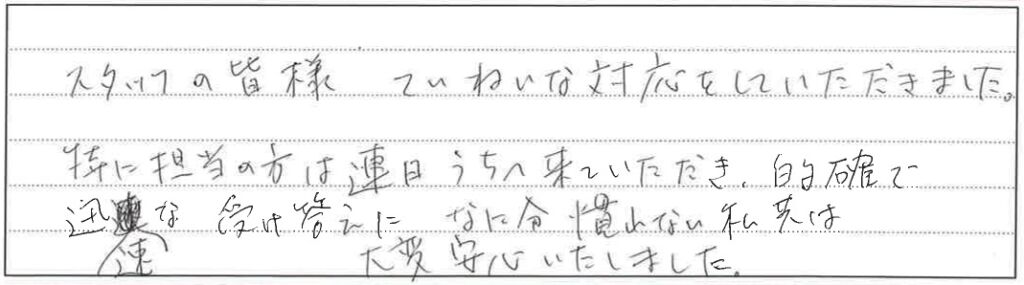 スタッフの皆様 ていねいな対応をしていただきました。
特に担当の方は連日うちへ来ていただき、的確で
迅速な 受け答えに なに分 慣れない私共は
大変安心いたしました。